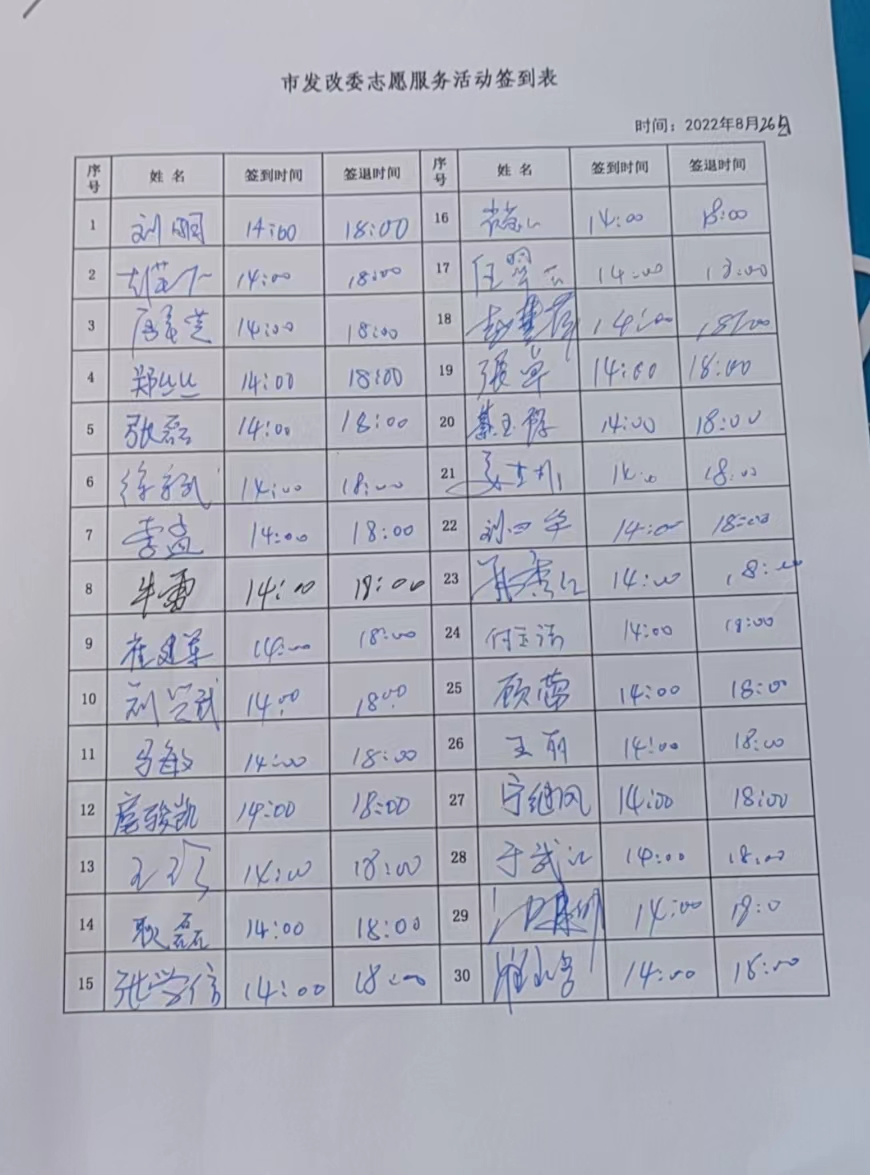 市发改委志愿服务活动签到表
时间：2022年8月26日
序号 姓名 签到时间 签退时间 序号 姓名 签到时间 签退时间
1 刘明 14:00 18:00 16 14:00 18:00
2 14:00 18:00 17 14:00 18:00
3 14:00 18:00 18 14:00 18:00
4 郑丝丝 14:00 18:00 19 张卓 14:00 18:00
5 张磊 14:00 18:00 20 14:00 18:00
6 14:00 18:00 21 18:00
7 李孟 14:00 18:00 22 14:00 18:00
8 牛雷 14:00 18:00 23 14:00 18:00
9 崔建军 14:00 18:00 24 14:00 18:00
10 14:00 18:00 25 顾蕾 14:00 18:00
11 马敏 14:00 18:00 26 王丽 14:00 18:00
12 庞骏凯 14:00 18:00 27 宁继风 14:00 18:00
13 14:00 18:00 28 于武江 14:00 18:00
14 耿磊 14:00 18:00 29 14:00 18:0
15 张学信 14:00 18:00 30 14:00 18:00